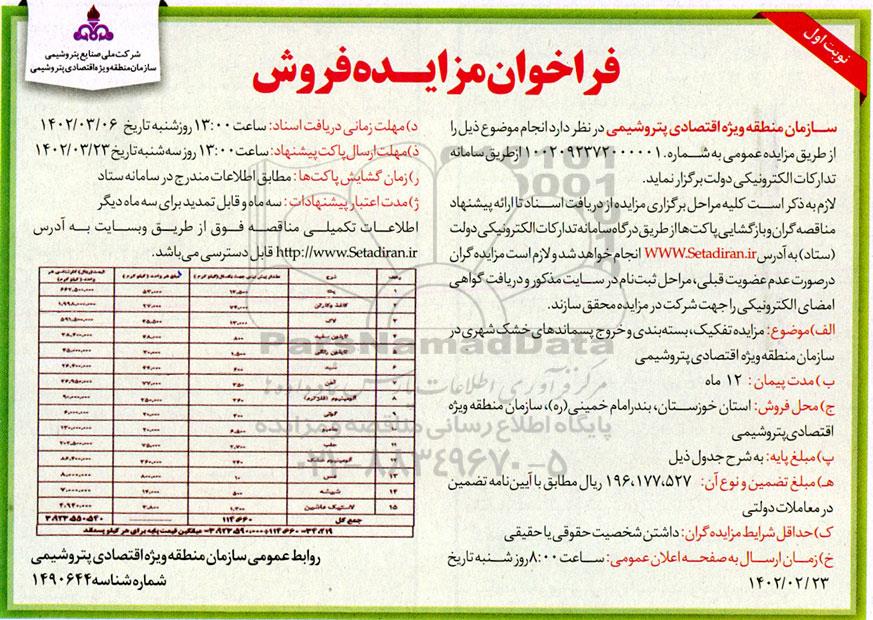 شرکت ملی صنایع پتروشیمی
سازمان منطقه ویژه اقتصادی پتروشیمی
نوبت اول
فراخوان مزایده فروش
سازمان منطقه ویژه اقتصادی پتروشیمی در نظر دارد انجام موضوع ذیل را
از طریق مزایده عمومی به شماره. ۱۰۰۲۰۹۲۳۷۲۰۰۰۰۰۱ از طریق سامانه
تدارکات الکترونیکی دولت برگزار نماید.
لازم به ذکر است کلیه مراحل برگزاری مزایده از دریافت اسناد تا ارائه پیشنهاد
مناقصه گران و بازگشایی پاکت ها از طریق درگاه سامانه تدارکات الکترونیکی دولت
(ستاد) به آدرس WWW.Setadiran.ir انجام خواهد شد و لازم است مزایده گران
در صورت عدم عضویت قبلی، مراحل ثبت نام در سایت مذکور و دریافت گواهی
امضای الکترونیکی را جهت شرکت در مزایده محقق سازند.
الف) موضوع: مزایده تفکیک، بسته بندی و خروج پسماندهای خشک شهری در
سازمان منطقه ویژه اقتصادی پتروشیمی
ب) مدت پیمان: ۱۲ ماه
ج) محل فروش: استان خوزستان، بندر امام خمینی (ره)، سازمان منطقه ویژه
اقتصادی پتروشیمی
پ) مبلغ پایه: به شرح جدول ذیل
هـ) مبلغ تضمین و نوع آن: ۱۹۶،۱۷۷،۵۲۷ ریال مطابق با آیین نامه تضمین
در معاملات دولتی
ک) حداقل شرایط مزایده گران: داشتن شخصیت حقوقی یا حقیقی
خ) زمان ارسال به صفحه اعلان عمومی: ساعت ۸:۰۰ روز شنبه تاریخ
۱۴۰۲/۰۲/۲۳
د) مهلت زمانی دریافت اسناد: ساعت ۱۳:۰۰ روز شنبه تاریخ ۱۴۰۲/۰۳/۰۶
ذ) مهلت ارسال پاکت پیشنهاد: ساعت ۱۳:۰۰ روز سه شنبه تاریخ ۱۴۰۲/۰۳/۲۳
ر) زمان گشایش پاکت ها: مطابق اطلاعات مندرج در سامانه ستاد
ژ) مدت اعتبار پیشنهادات: سه ماه و قابل تمدید برای سه ماه دیگر
اطلاعات تکمیلی مناقصه فوق از طریق وبسایت به آدرس
http://www.Setadiran.ir قابل دسترسی می باشد.
ردیف شرح
۱ ۱۲،۵۰۰ ۵۳،۰۰۰ ۶۶۲،۵۰۰،۰۰۰
۲ کاغذ و کارتن ۷۴،۰۰۰ ۲۷،۰۰۰ ۱،۹۹۸،۰۰۰،۰۰۰
۸ ۳۶۰ ۲۵۰،۰۰۰ ۹۰،۰۰۰،۰۰۰
۱۳ مس ۱۰ ۸۰۰،۰۰۰ ۸،۰۰۰،۰۰۰
۱۴ شیشه ۵۰۰ ۱۴،۰۰۰ ۷،۰۰۰،۰۰۰
۱۵ لاستیک ماشین
جمع کل ۱۱۴،۶۶۰ ۳،۹۲۳،۵۵۰،۵۴۰
میانگین قیمت پایه برای هر کیلو پسماند
روابط عمومی سازمان منطقه ویژه اقتصادی پتروشیمی
شماره شناسه ۱۴۹۰۶۴۴
ParsNamadData
مرکز فرآوری اطلاعات پارس نماد داده ها
پایگاه اطلاع رسانی مناقصه و مزایده
۰۲۱-۸۸۳۴۹۶۷۰-۵